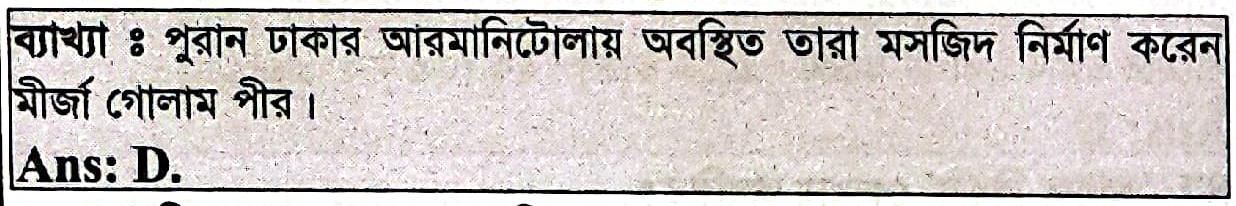 ব্যাখ্যা ঃ পুরান ঢাকার আরমানিটোলায় অবস্থিত তারা মসজিদ নির্মাণ করেন
মীর্জা গোলাম পীর।
Ans: D.